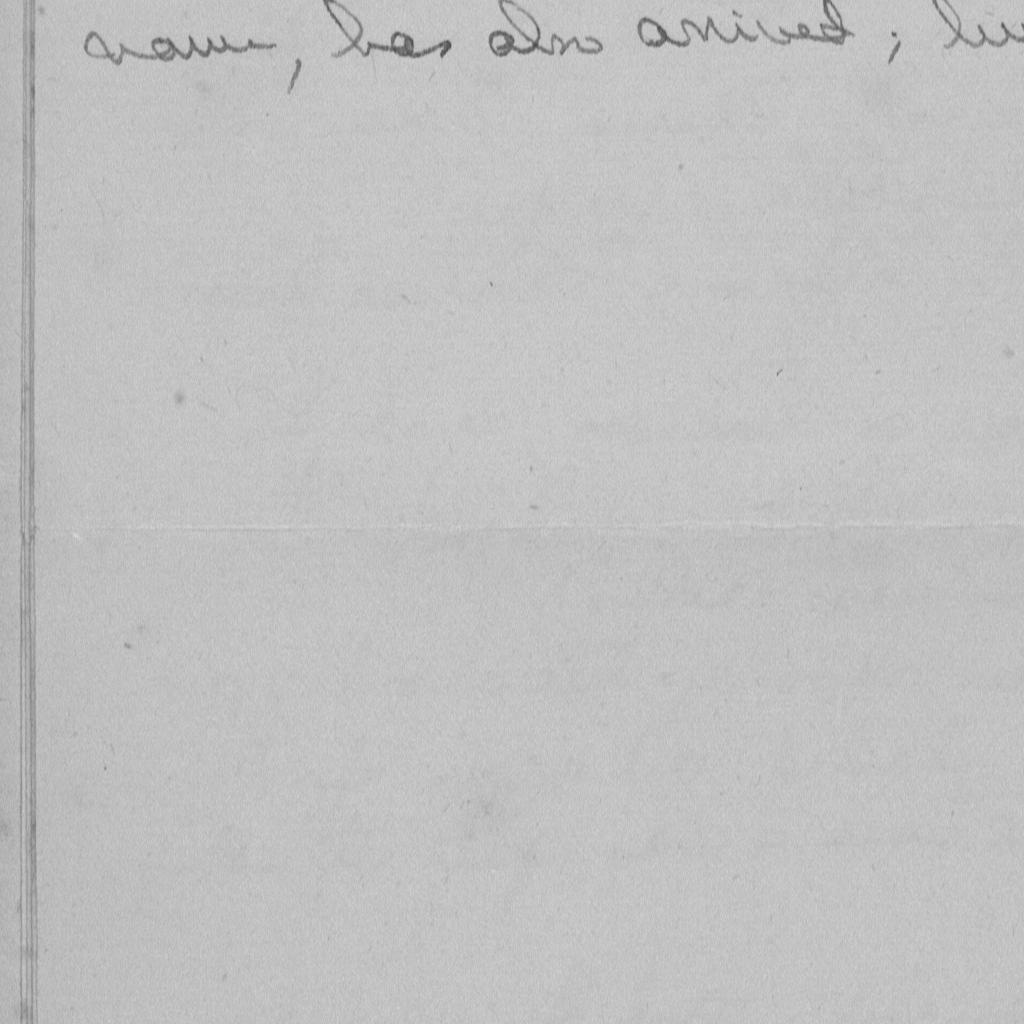 name, has also arrived;